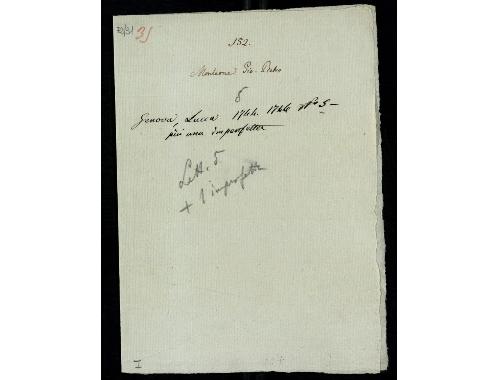 30/31 31
152.
Monleone Gio. Batta
5
Genova, Lucca 1744. 1746 N.o 5-
più una imperfetta
Lett. 5
+ 1 imperfetta
I